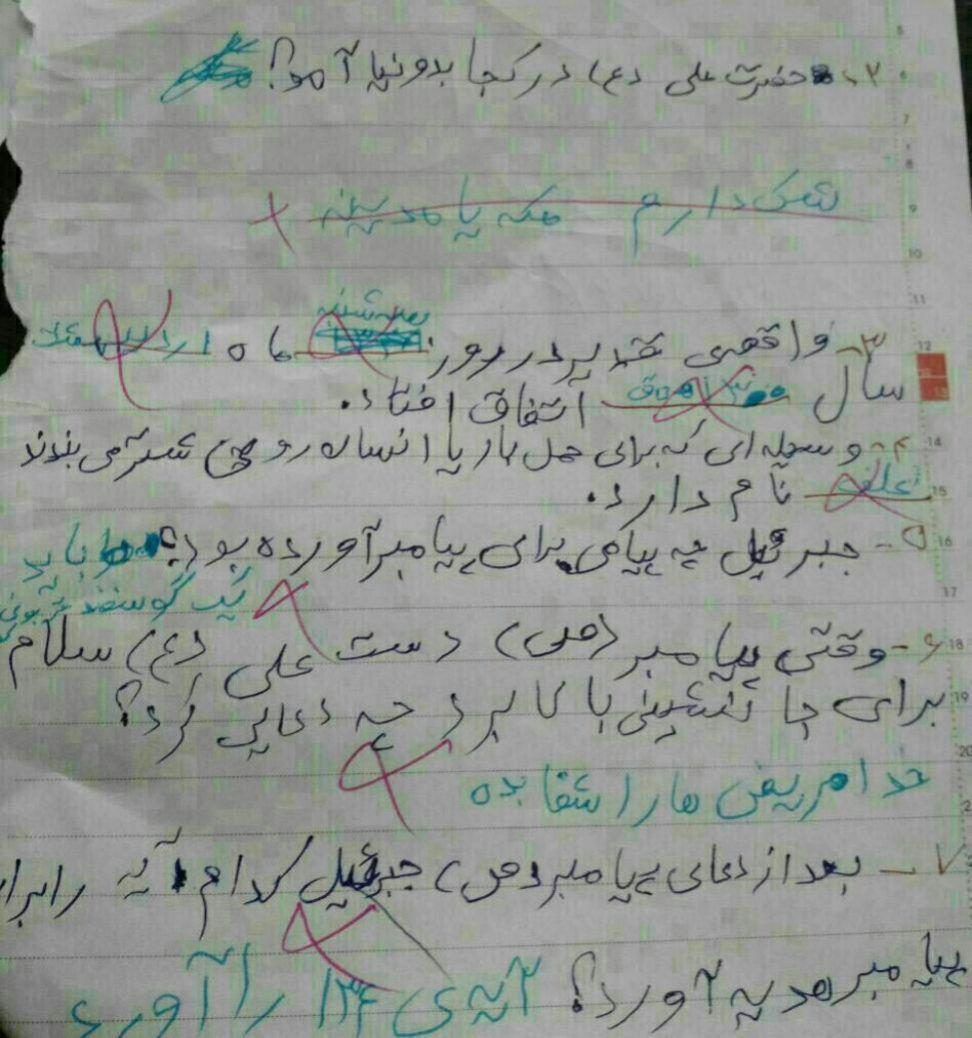 ۲- حضرت علی (ع) در کجا بدونیا آمد؟
شک دارم مکه یا مدینه
۳- واقعی غدیر در روز سه شنبه ماه
سال اتفاق افتاد.
۴- وسیله ای که برای حمل بار یا انسان رو ی شتر می بندند
علف نام دارد.
۵- جبرئیل چه پیامی برای پیامبر آورده بود؟ باید
یک گوسفند
۶- وقتی پیامبر (ص) دست علی (ع) سلام
برای جا نشینی بالا برد چه دعایی کرد؟
خدا مریض ها را شفا بده
۷- بعد از دعای پیامبر (ص) جبرئیل کدام آیه را برا
پیامبر هدیه آورد؟ آیه ی ۱۳۴ را آورد